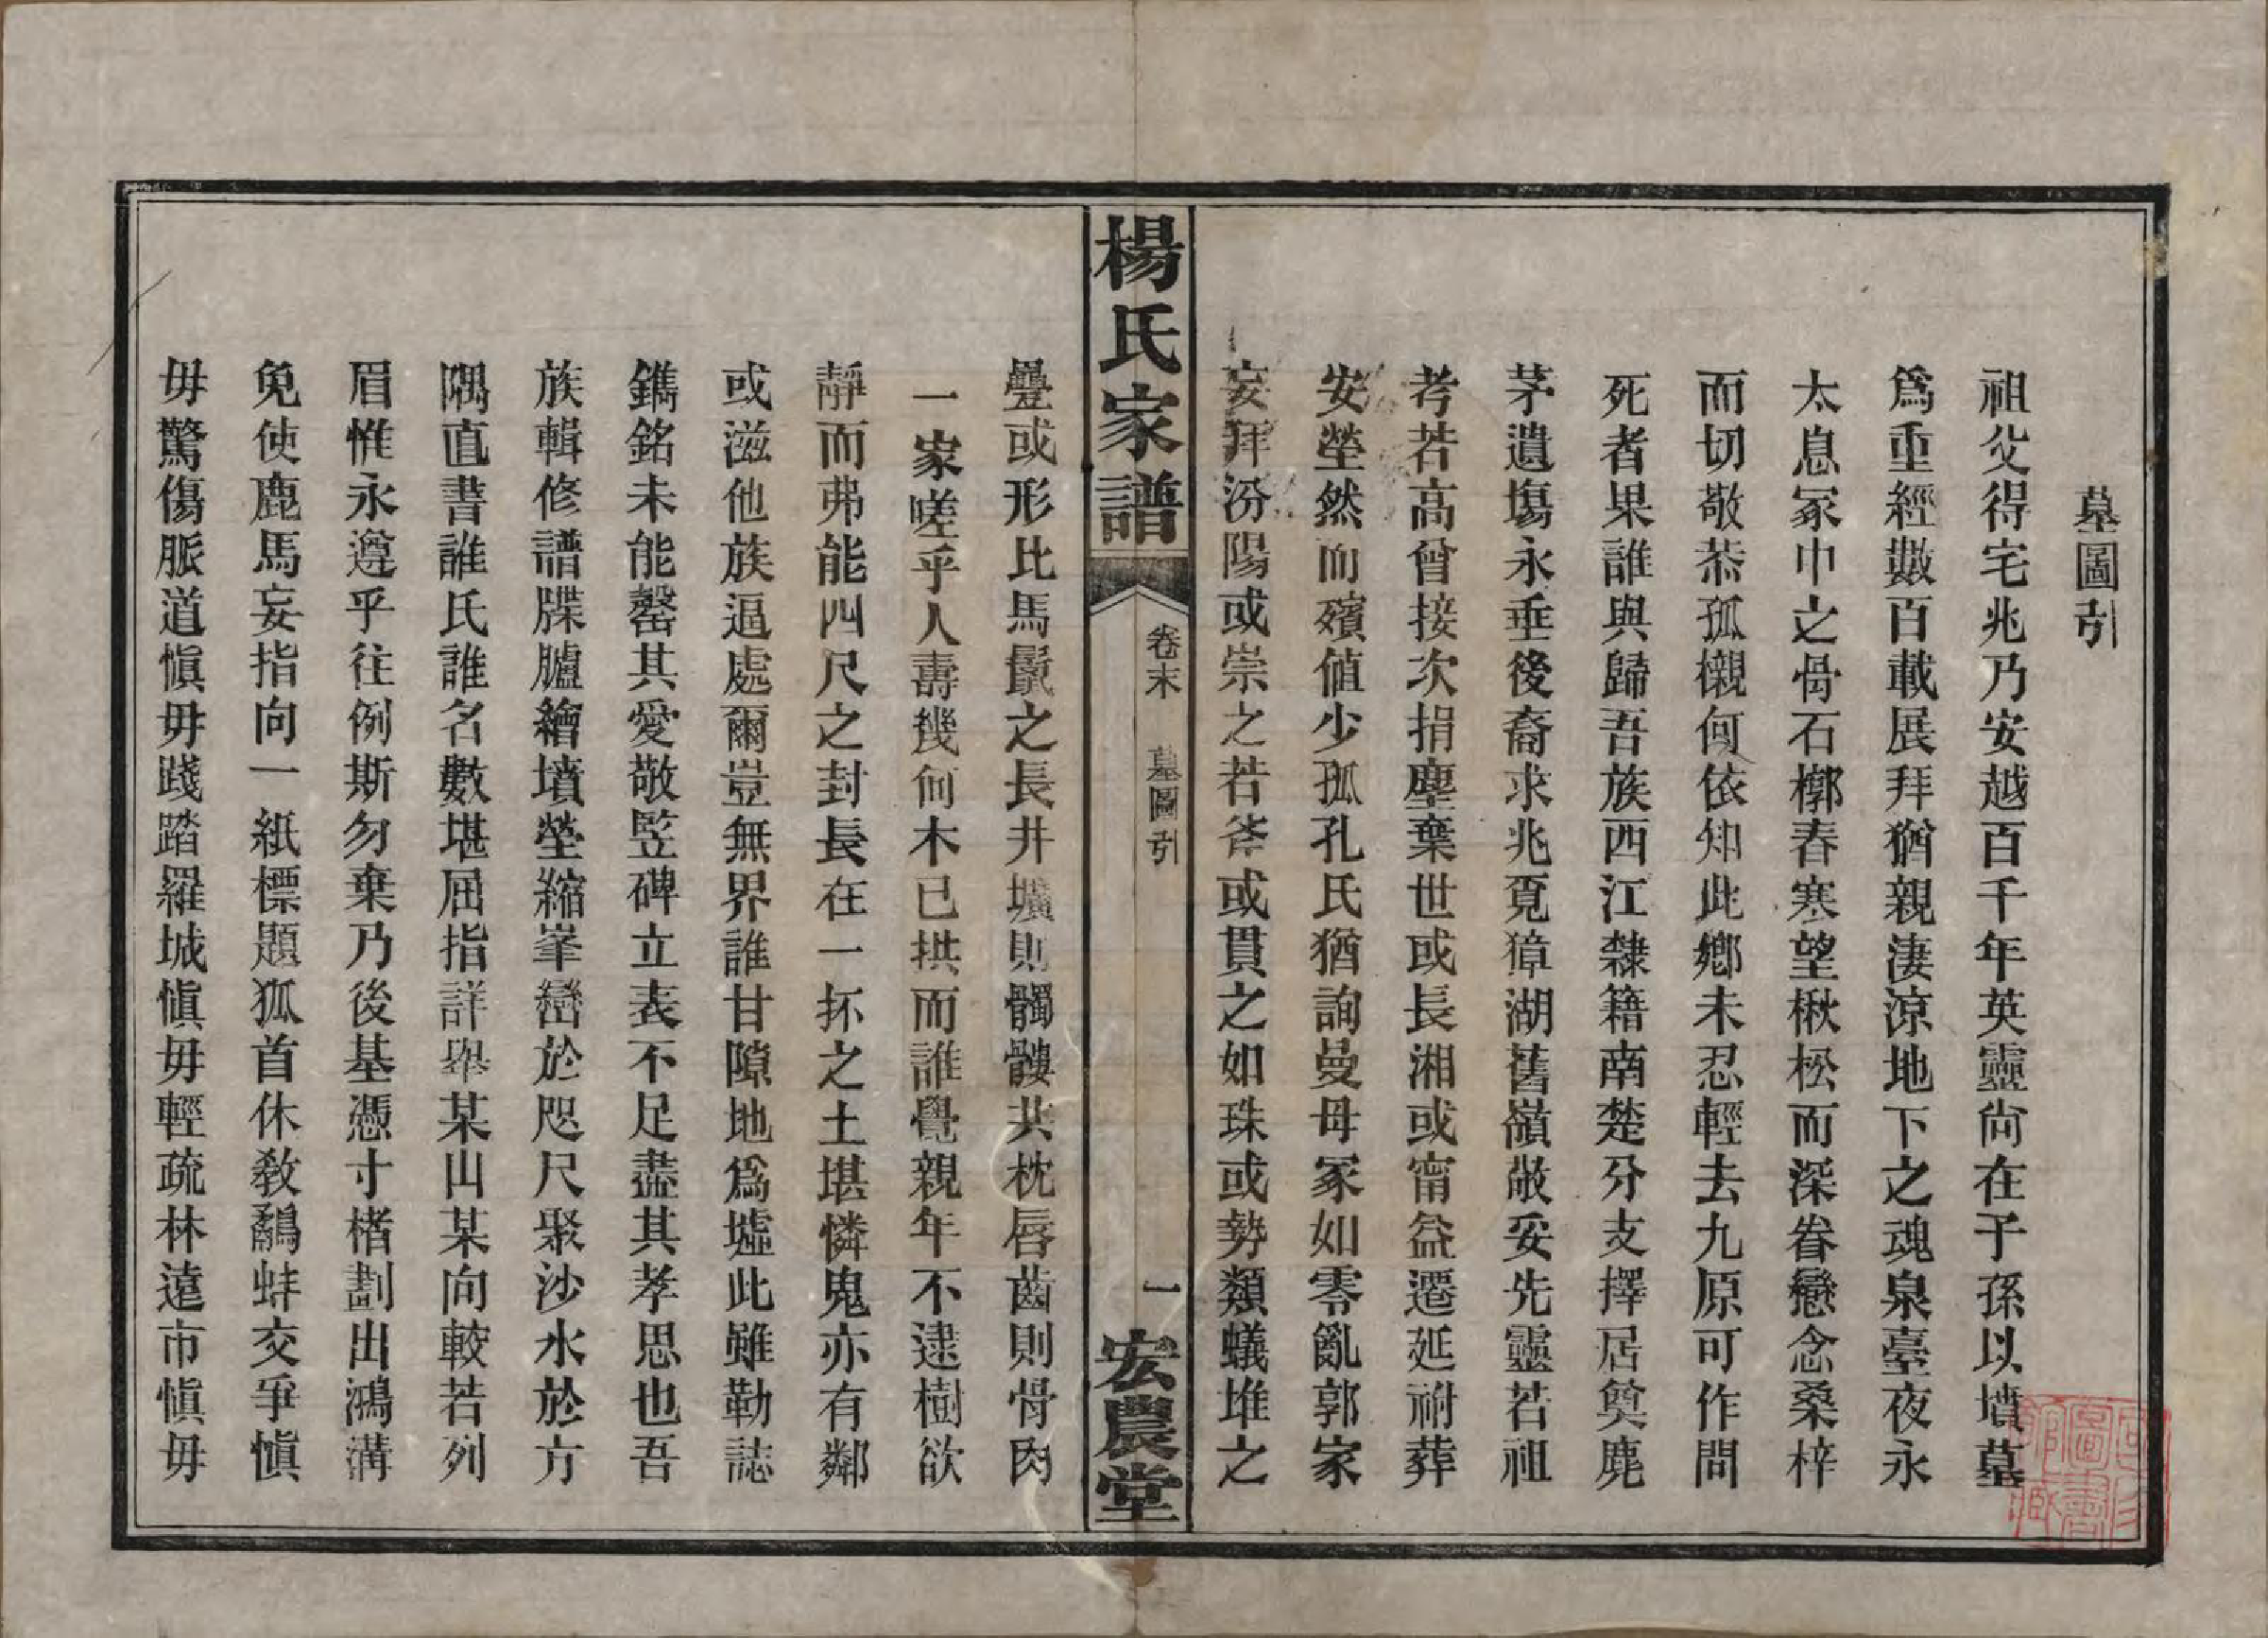 墓圖引
祖父得宅兆乃安越百千年英靈尙在子孫以墳墓
爲重經數百載展拜猶親淒涼地下之魂泉臺夜永
太息冢中之骨石槨春寒望楸松而深眷戀念桑梓
而切敬恭孤櫬何依知此鄕未忍輕去九原可作問
死者果誰與歸吾族西江隸籍南楚分支擇居奠鹿
茅遺塲永垂後裔求兆覓獐湖舊嶺敬妥先靈若祖
考若高曾接次捐塵棄世或長湘或甯益遷延祔葬
安塋然而殯値少孤孔氏猶詢曼母冢如零亂郭家
妄拜汾陽或崇之若斧或貫之如珠或勢類蟻堆之
疊或形比馬鬣之長井壙則髑髏共枕唇齒則骨肉
一家嗟乎人壽幾何木已拱而誰覺親年不逮樹欲
靜而弗能四尺之封長在一抔之土堪憐鬼亦有鄰
或滋他族逼處爾豈無界誰甘隙地爲墟此雖勒誌
鐫銘未能罄其愛敬竪碑立表不足盡其孝思也吾
族輯修譜牒臚繪墳塋縮峯巒於咫尺聚沙水於方
隅直書誰氏誰名數堪屈指詳舉某山某向較若列
眉惟永遵乎往例斯勿棄乃後基憑寸楮劃出鴻溝
免使鹿馬妄指向一紙標題狐首休敎鷸蚌交爭愼
毋驚傷脈道愼毋踐踏羅城愼毋輕疏林遠市愼毋
楊氏家譜
卷末
墓圖引
一
宏農堂
國家圖書館藏